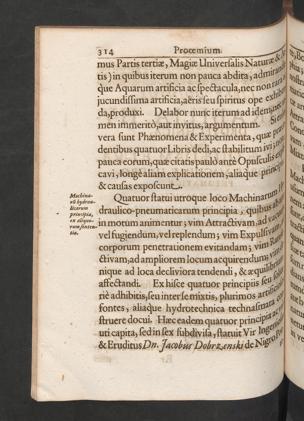 314 Proœmium.
mus Partis tertiæ, Magiæ Universalis Naturæ &
tis) in quibus iterum non pauca abdita, admiran
que Aquarum artificia ac spectacula, nec non rara
jucundissima artificia, aëris seu spiritus ope exhi
da, produxi. Delabor nunc iterum ad idem, nec
men immeritò, aut invitus, argumentum. Si e
vera sunt Phænomena & Experimenta, quæ præ
dentibus quatuor Libris dedi, ac stabilitum ivi;
pauca eorum, quæ citatis paulò antè Opusculis ex
cavi, longè aliam explicationem, aliaque princip
& causas exposcunt.
Quatuor statui utroque loco Machinarum
draulico-pneumaticarum principia, quibus
in motum animentur; vim Attractivam ad vacuum
vel fugiendum, vel replendum; vim Expulsivam
corporum penetrationem evitandam; vim Rare
ctivam, ad ampliorem locum acquirendum;
nique ad loca decliviora tendendi, & æquilibrium
affectandi. Ex hisce quatuor principiis seu
riè adhibitis, seu inter se mixtis, plurimos artificio
fontes, aliaque hydrotechnica technasmata
struere docui. Hæc eadem quatuor principia
uti capita, sed in sex subdivisa, statuit Vir Ingenio
& Eruditus Dn. Jacobus Dobrzenski de Nigro
Machina-
rū hydrau-
licarum
principia,
ex aliquo-
rum senten-
tia.